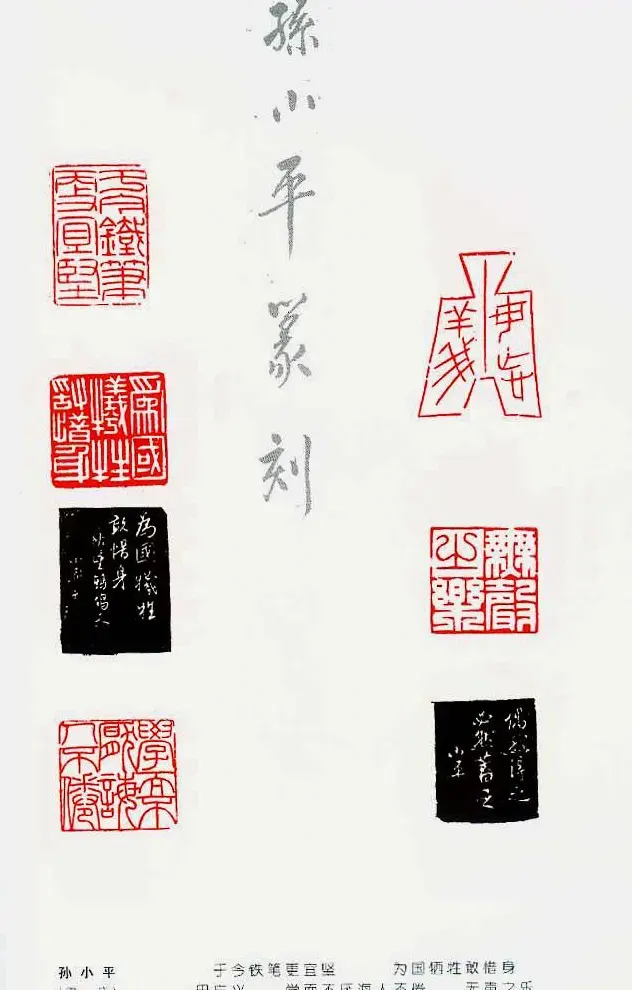 孫小平篆刻
于今鐵筆更宜堅
為國犧牲敢惜身
為國犧牲
敢惜身
學而不厭誨人不倦
無聲之樂
偶然得之
小平
孙小平 于今铁笔更宜坚 为国牺牲敢惜身
学而不厌诲人不倦 无声之乐